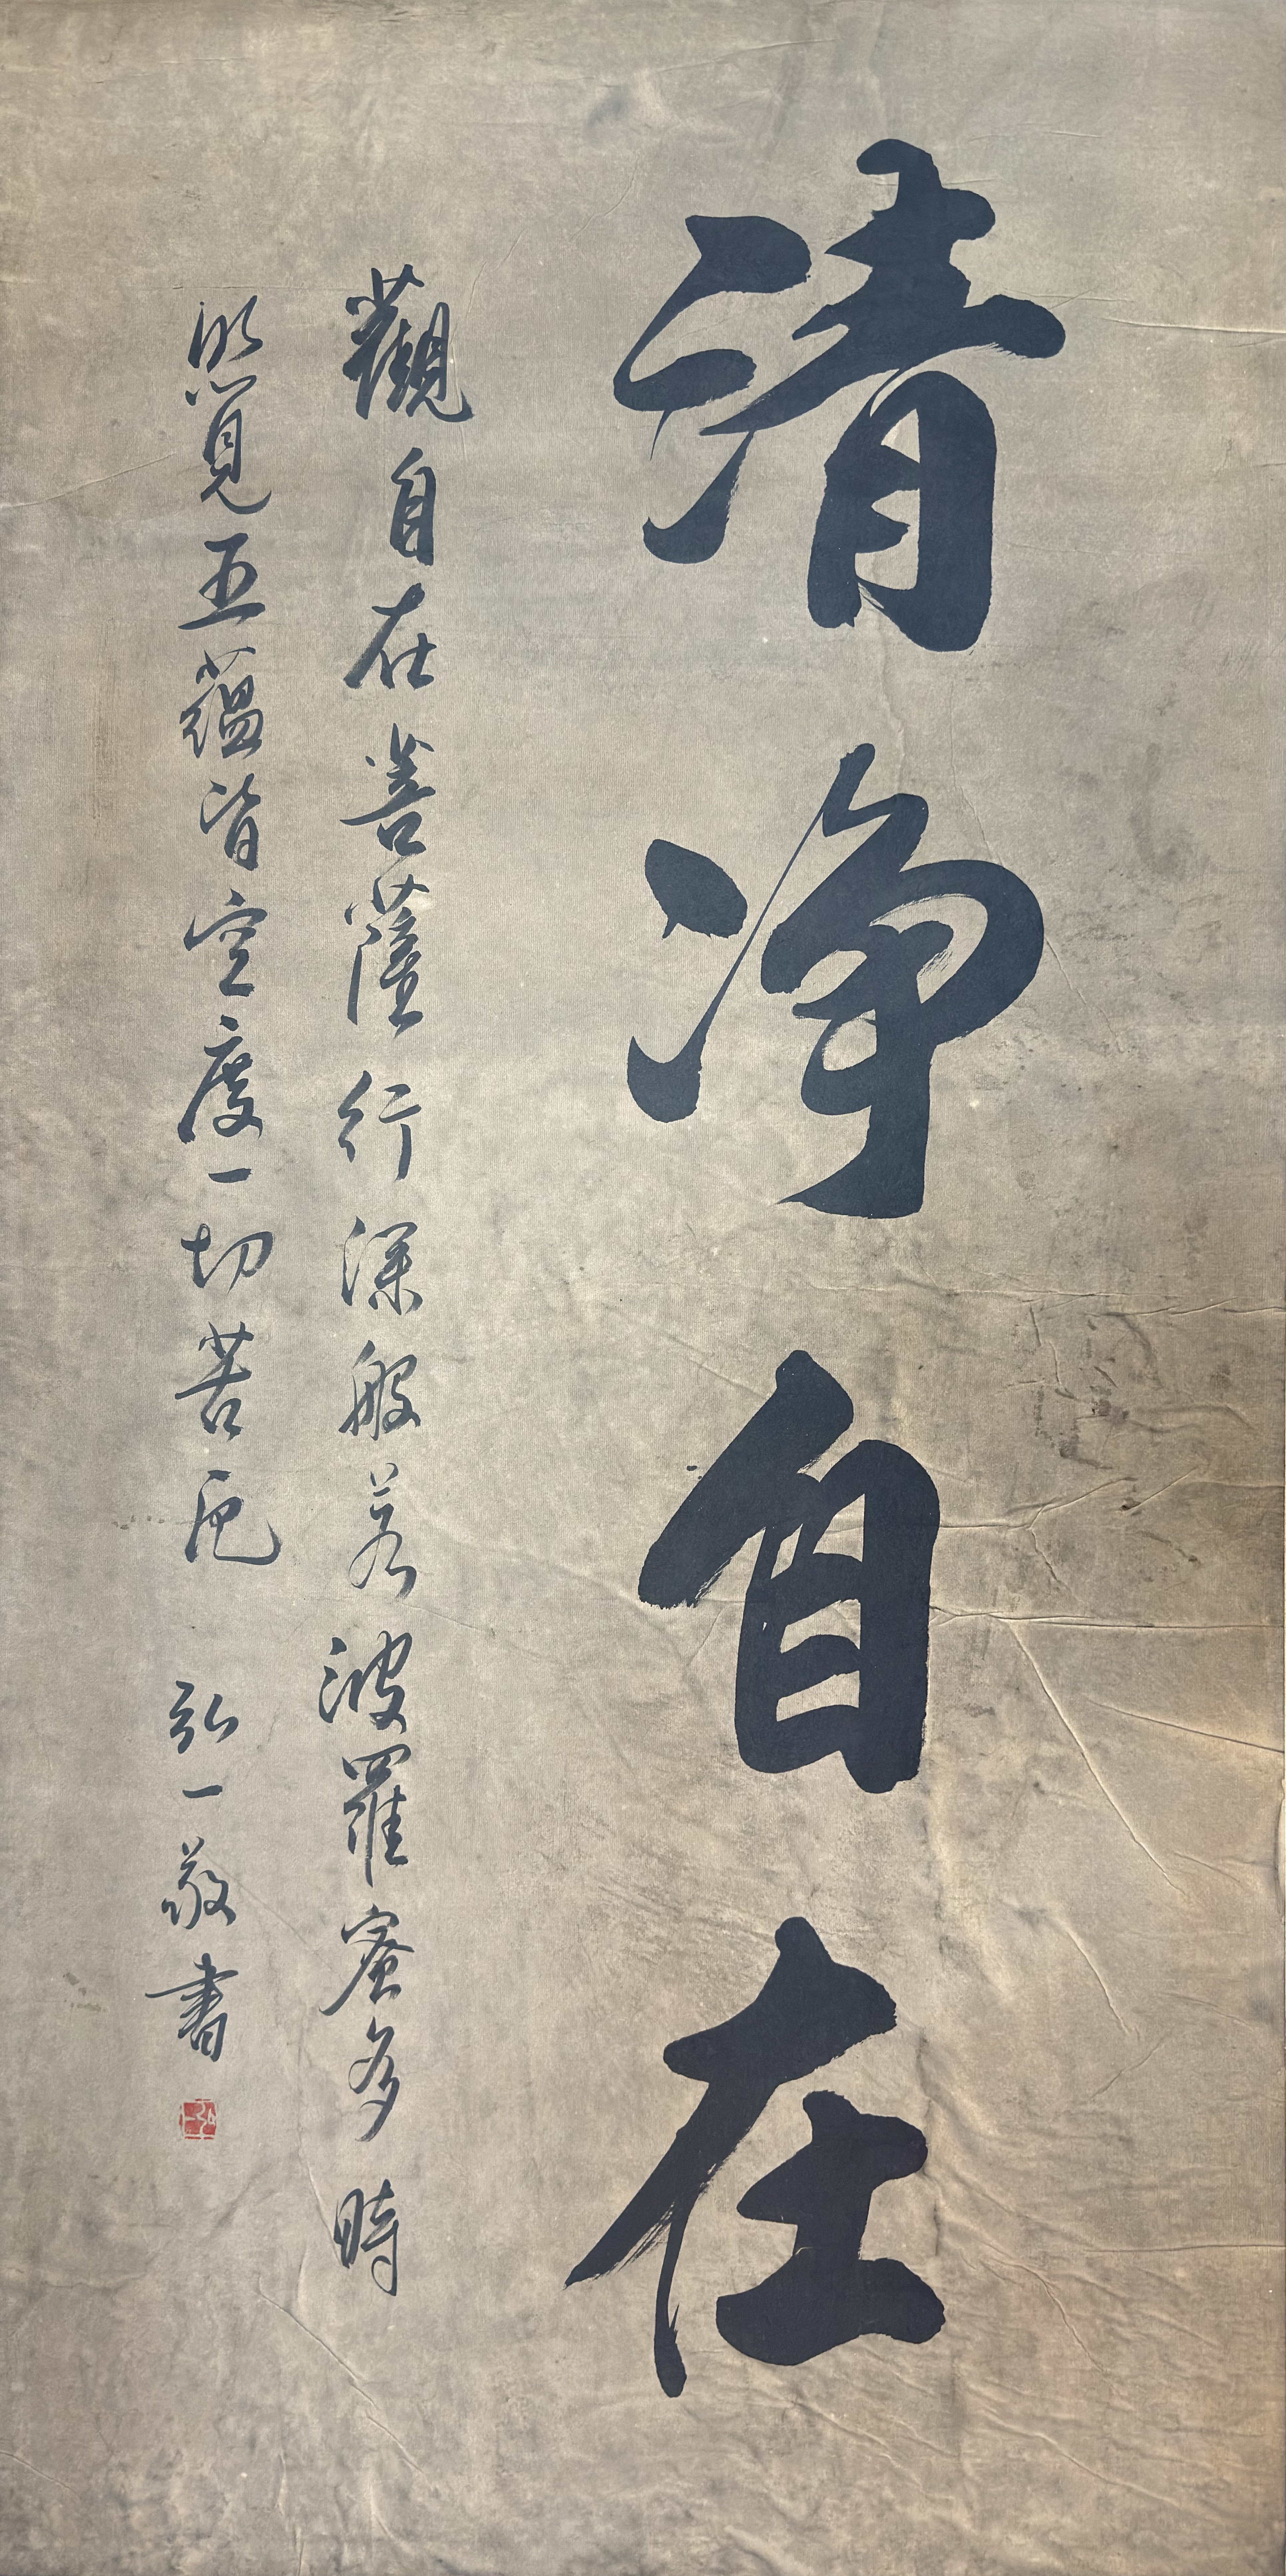 清净自在
觀自在菩薩行深般若波羅蜜多時
照見五蘊皆空度一切苦厄
弘一敬書
弘一